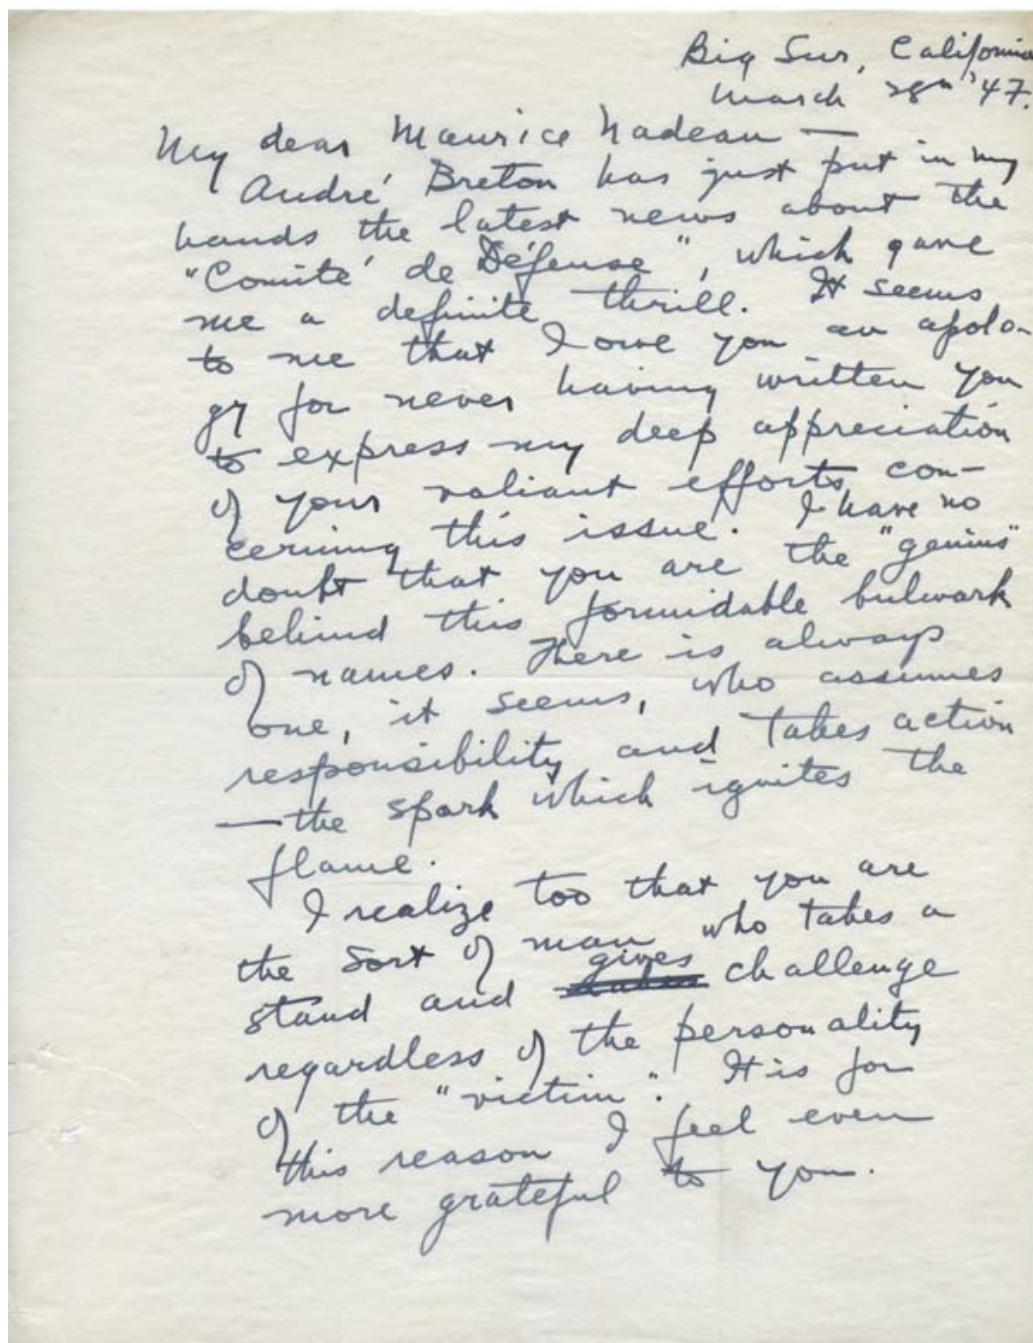 Big Sur, California
March 28th '47.
My dear Maurice Nadeau —
André Breton has just put in my
hands the latest news about the
"Comité de Défense", which gave
me a definite thrill. It seems
to me that I owe you an apolo-
gy for never having written you
to express my deep appreciation
of your valiant efforts con-
cerning this issue. I have no
doubt that you are the "genius"
behind this formidable bulwark
of names. There is always
one, it seems, who assumes
responsibility and takes action
— the spark which ignites the
flame.
I realize too that you are
the sort of man who takes a
stand and gives challenge
regardless of the personality
of the "victim". It is for
this reason I feel even
more grateful to you.